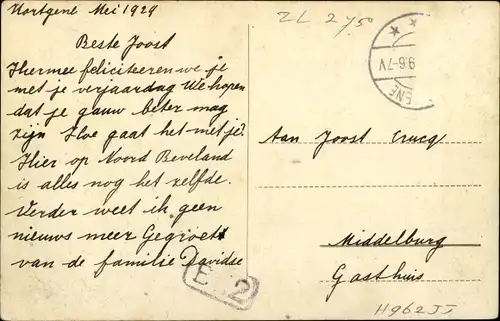 Kortgene Mei 1929
Beste Joost
Hiermee feliciteeren we je
met je verjaardag We hopen
dat je gauw beter mag
zijn Hoe gaat het met je?
Hier op Noord Beveland
is alles nog het zelfde.
Verder weet ik geen
nieuws meer Gegroet
van de familie Davidse
ZL 2 750
9.6-7V
ENE
Aan Joost
Middelburg
Gasthuis
E 2
H962JJ